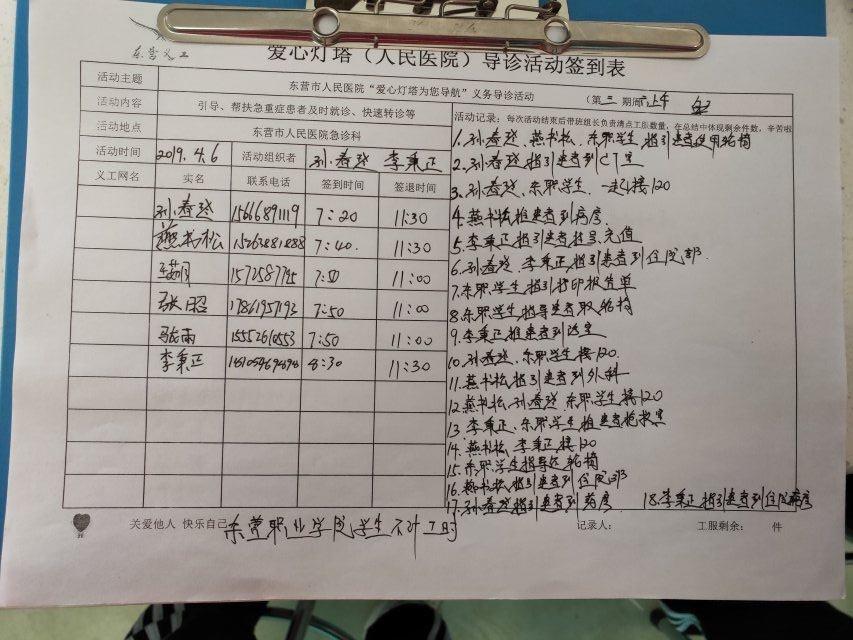 东营义工
爱心灯塔（人民医院）导诊活动签到表
活动主题 东营市人民医院“爱心灯塔为您导航”义务导诊活动 （第三期 上午
活动内容 引导、帮扶急重症患者及时就诊、快速转诊等
活动地点 东营市人民医院急诊科
活动时间 2019.4.6 活动组织者 孙春燕 李秉正
义工网名 实名 联系电话 签到时间 签退时间
孙春燕 15616891119 7:20 11:30
燕书松 7:40. 11:30
1572587795 7:50 11:00
张昭 17861957193 7:50 11:00
张雨 15552610553 7:50 11:00
李秉正 8:30 11:30
活动记录：每次活动结束后带班组长负责清点工服数量，在总结中体现剩余件数，辛苦啦
1.孙春燕、燕书松、东职学生,指引患者使用轮椅
2.孙春燕指引患者到CT室
3.孙春燕、东职学生一起接120
4.燕书松推患者到病房
5.李秉正指引患者挂号.充值
6.孙春燕、李秉正,指引患者到住院部.
7.东职学生指引打印报告单
8.东职学生指导患者取轮椅
9.李秉正推患者到
10.孙春燕、东职学生接120.
11.燕书松,指引患者到外科
12.燕书松,孙春燕、东职学生接120
13.李秉正、东职学生推患者抢救室
14.燕书松、李秉正接120
15.东职学生指导还轮椅
16.燕书松,指引患者到住院部
17.孙春燕指引患者到病房 18.李秉正指引患者到住院病房
关爱他人 快乐自己 东营职业学院学生不计工时 记录人： 工服剩余： 件